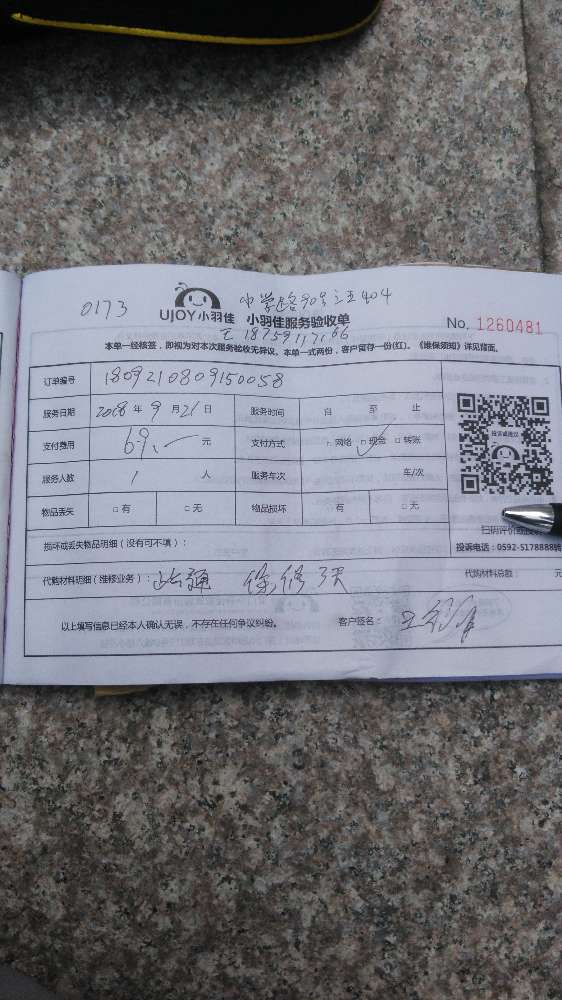 0173
UJOY小羽佳 小羽佳服务验收单
中学路90号之三404
No. 1260481
王 18759117166
本单一经核签，即视为对本次服务验收无异议。本单一式两份，客户留存一份(红)。《维保须知》详见背面。
订单编号 1809210809150058
服务日期 2018 年 9 月 21 日 服务时间 自 至 止
支付费用 69.一 元 支付方式 □ 网络 ☑ 现金 □ 转账
服务人数 1 人 服务车次 车/次
物品丢失 □ 有 □ 无 物品损坏 有 □ 无
投诉或建议
扫码评价或投
投诉电话：0592-5178888转
损坏或丢失物品明细（没有可不填）：
代购材料明细（维修业务）： 疏通 保修3天 代购材料总额： 元
以上填写信息已经本人确认无误，不存在任何争议纠纷。 客户签名： 王